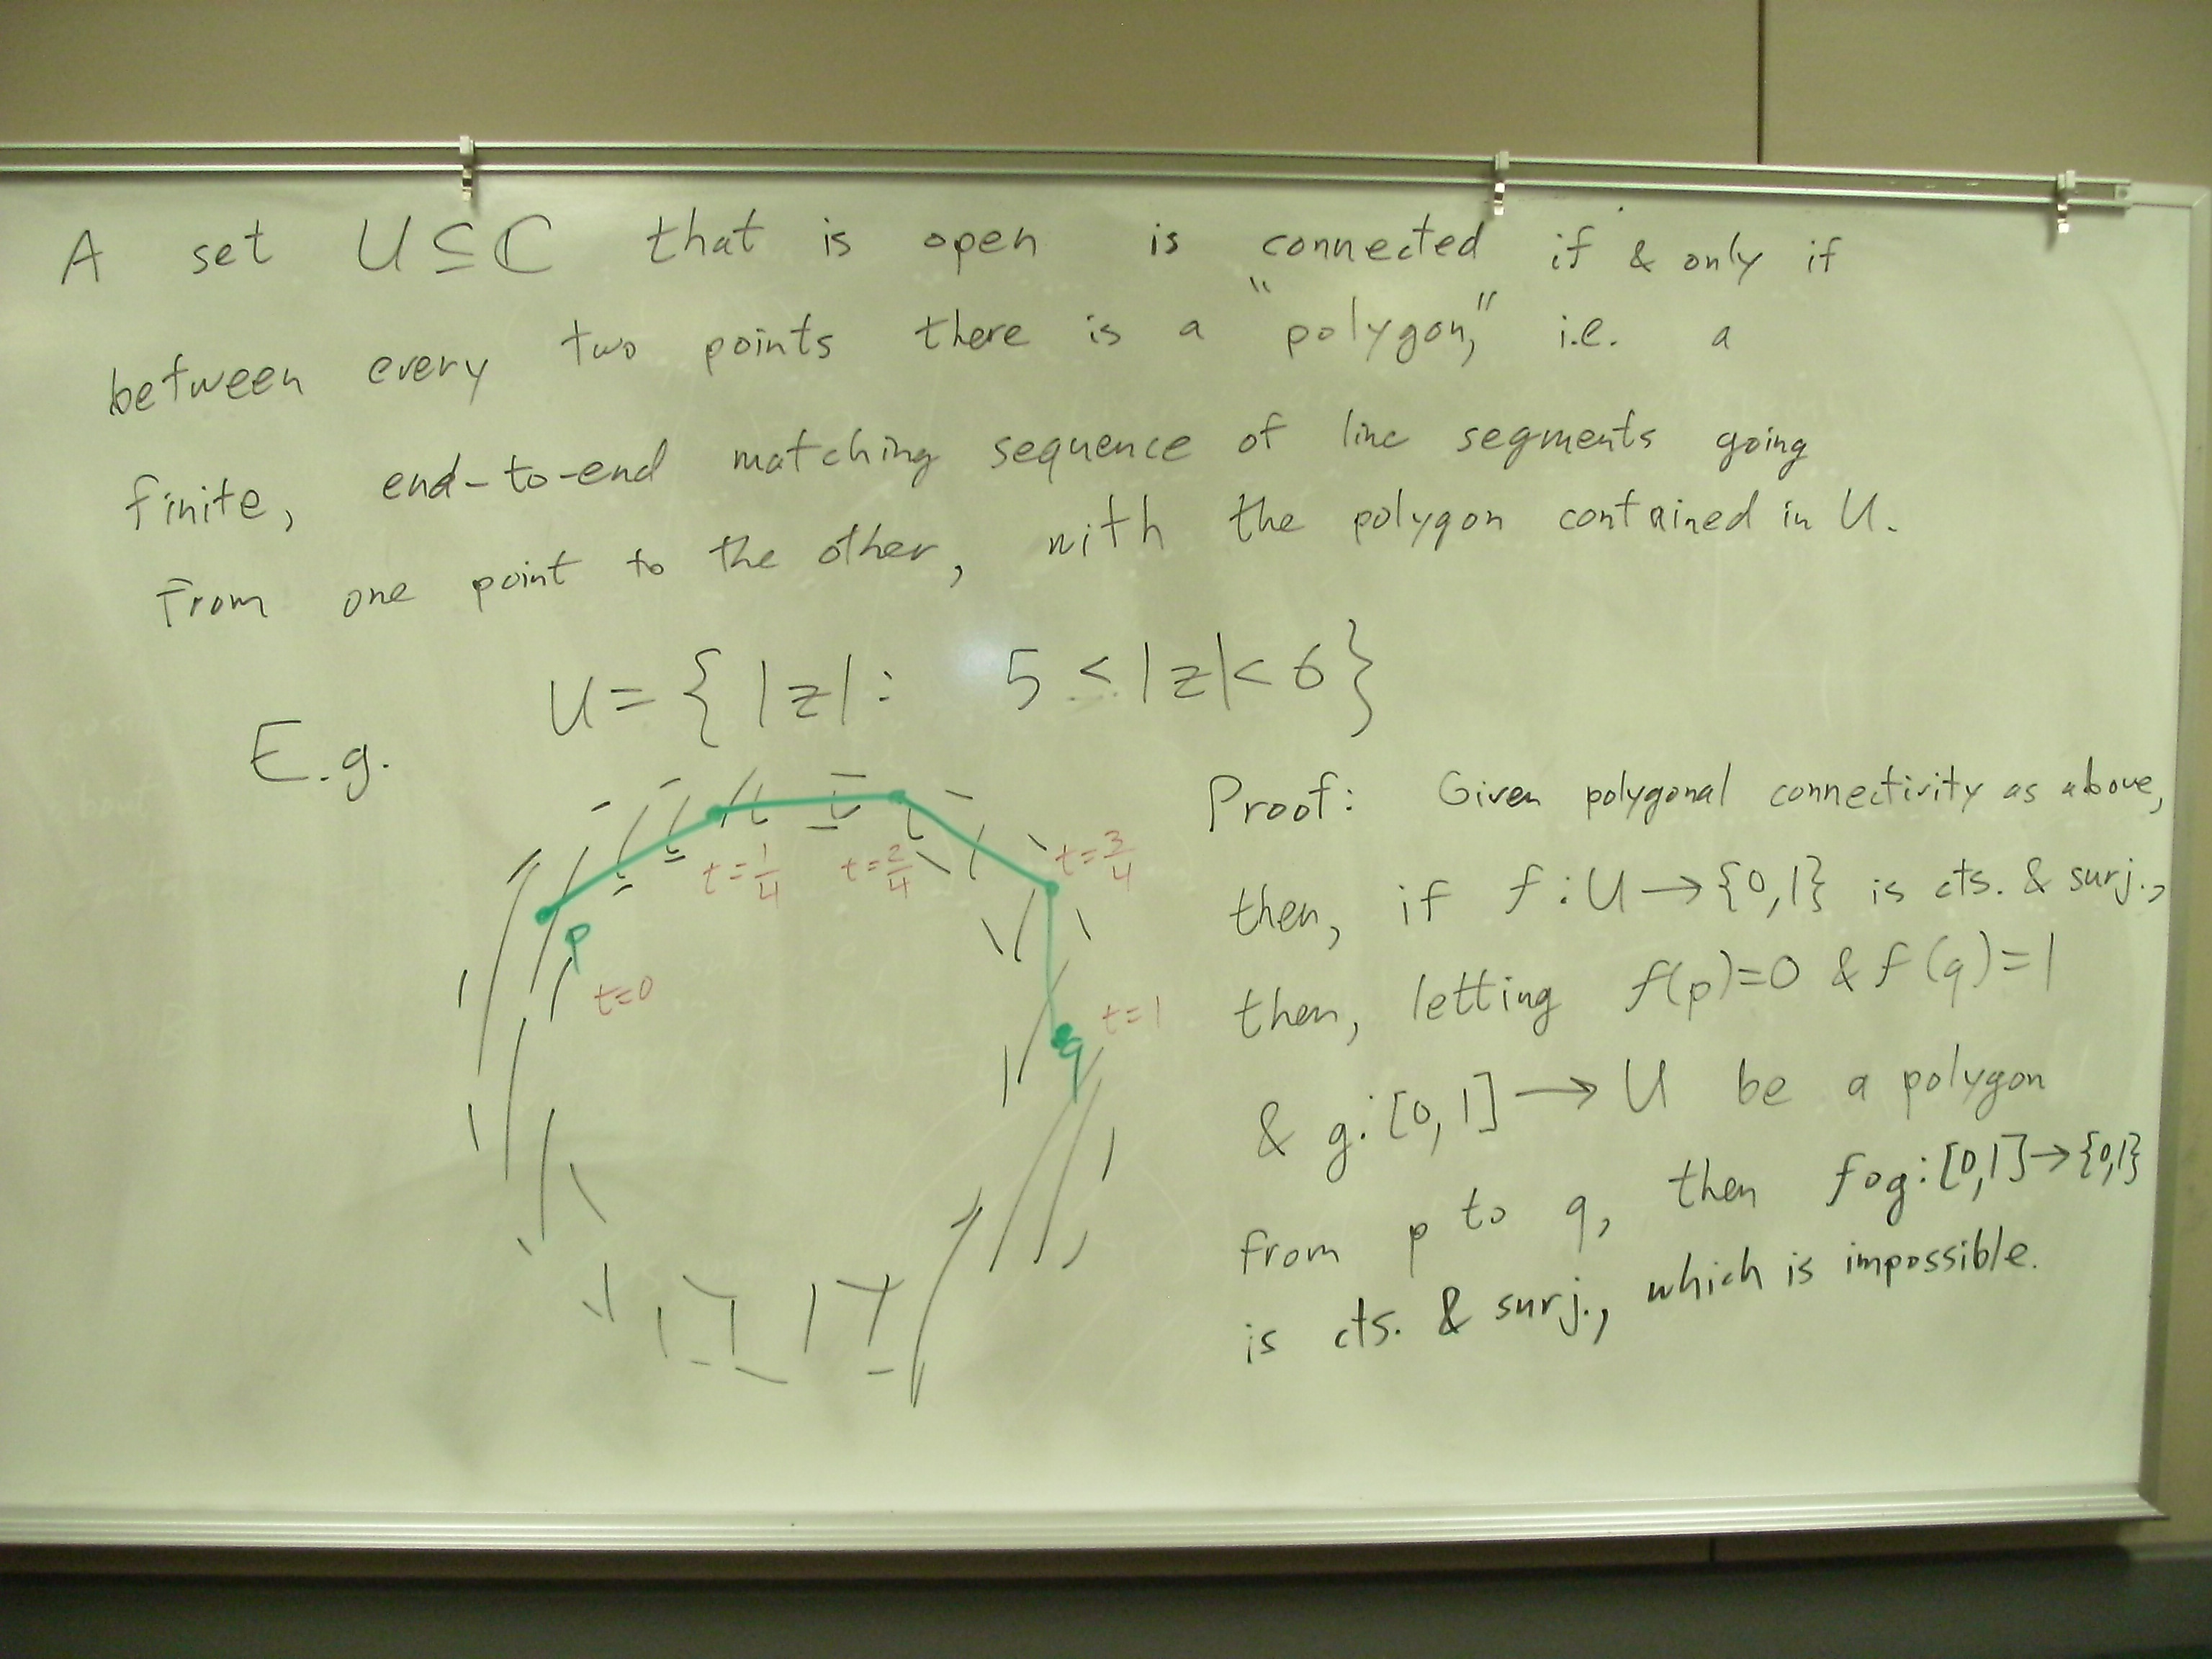 A set U ⊆ ℂ that is open is connected if & only if
between every two points there is a "polygon," i.e. a
finite, end-to-end matching sequence of line segments going
from one point to the other, with the polygon contained in U.
E.g. U = { |z| : 5 < |z| < 6 }
p
t=0
t=1/4
t=2/4
t=3/4
t=1
q
Proof: Given polygonal connectivity as above,
then, if f : U → {0,1} is cts. & surj.,
then, letting f(p)=0 & f(q)=1
& g: [0,1] → U be a polygon
from p to q, then f∘g: [0,1] → {0,1}
is cts. & surj., which is impossible.